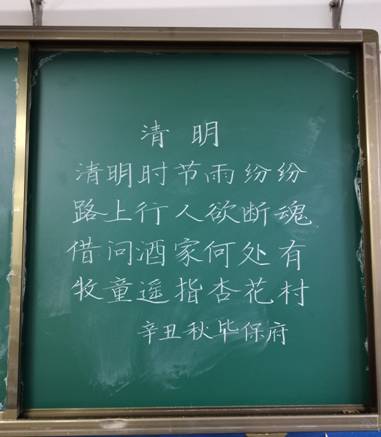 清明
清明时节雨纷纷
路上行人欲断魂
借问酒家何处有
牧童遥指杏花村
辛丑秋毕保府